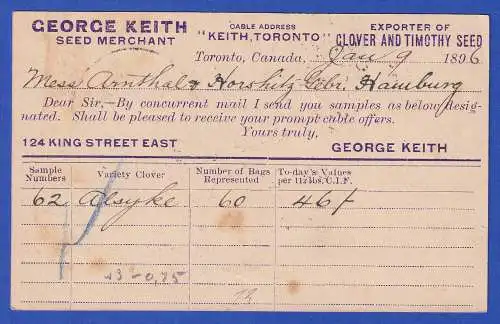 GEORGE KEITH CABLE ADDRESS EXPORTER OF
SEED MERCHANT "KEITH, TORONTO" CLOVER AND TIMOTHY SEED
Toronto, Canada, Jan 9 1896
Mess Arnthal & Horshitz Gebr, Hamburg
Dear Sir,—By concurrent mail I send you samples as below desig-
nated. Shall be pleased to receive your prompt cable offers.
Yours truly,
124 KING STREET EAST GEORGE KEITH
Sample Numbers Variety Clover Number of Bags Represented To-day's Values per 112 lbs. C.I.F.
62 Alsyke 60 46/